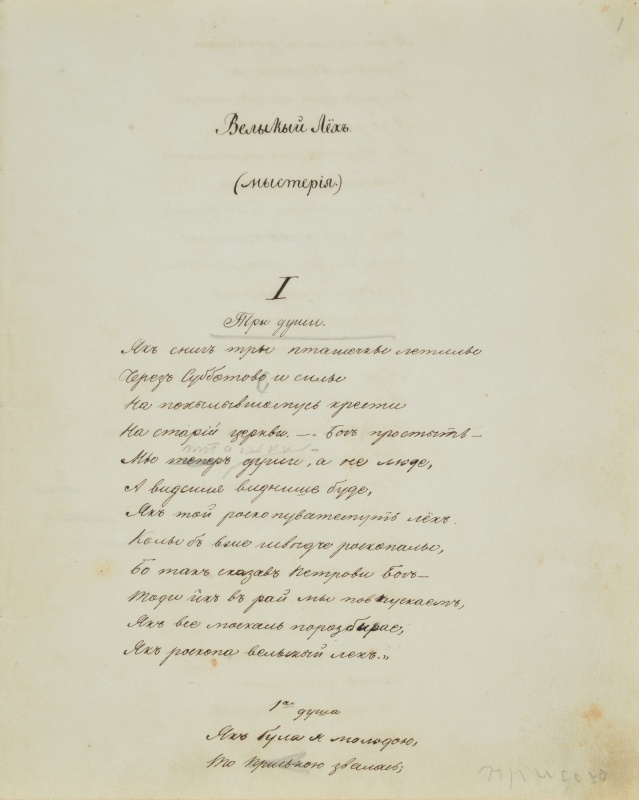 1
Велыкый Лёхъ.
(мыстерія.)
I
Тры души.
Якъ снигъ тры пташечкы летилы
Черезъ Субботово и силы
На похылывшомусь крести
На старій церкви. — Богъ простыть —
Мы теперъ души, а не люде,
А видсиля виднише буде,
Якъ той роскопуватемуть лёхъ.
Колы бъ вже швыдче роскопалы,
Бо такъ сказавъ Петрови Богъ —
Тоди ихъ въ рай мы повпускаемъ,
Якъ все москаль порозбирае,
Якъ роскопа велыкый лёхъ.„
1ᵃ душа
Якъ була я молодою,
То Прилькою звалась;